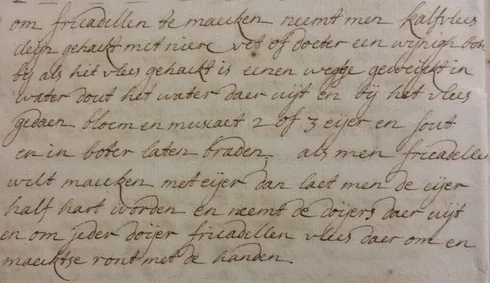 om fricadellen te maecken neemt men kalfvlees
cleijn gehackt met niere vet of doeter een wijnigh boter
bij als het vlees gehackt is eenen wegge geweijckt in
water dout het water daer uijt en bij het vlees
gedaen bloem en muscaet 2 of 3 eijer en sout
en in boter laten braden. als men fricadellen
wilt maecken met eijer dan laet men de eijer
half hart worden en neemt de doijers daer uijt
en om jeder doijer fricadellen vlees daer om en
maecktse ront met de handen